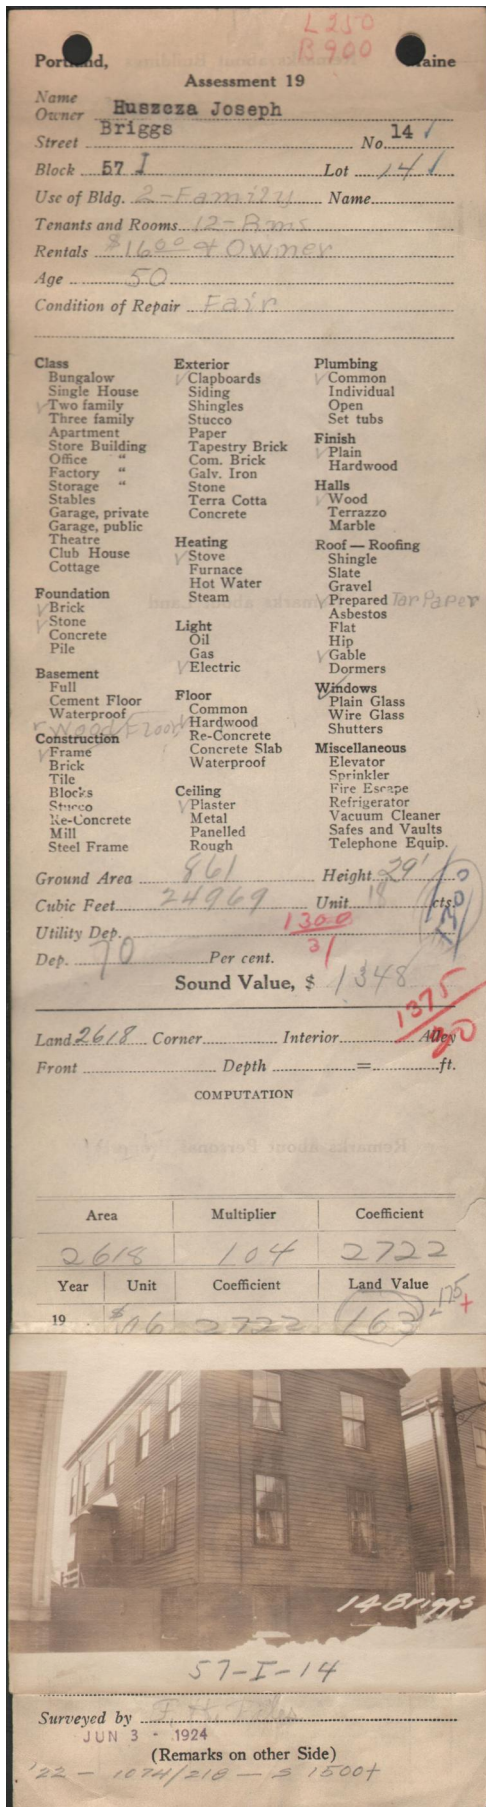 L 250
B 900
Portland, Maine
Assessment 19
Name
Owner Huszcza Joseph
Street Briggs No. 14
Block 57 I Lot 14
Use of Bldg. 2-Family Name
Tenants and Rooms 12-Rms
Rentals $16.00 & Owner
Age 50
Condition of Repair Fair
Class
Bungalow
Single House
√ Two family
Three family
Apartment
Store Building
Office "
Factory "
Storage "
Stables
Garage, private
Garage, public
Theatre
Club House
Cottage
Foundation
√ Brick
√ Stone
Concrete
Pile
Basement
Full
Cement Floor
Waterproof
√ Wood Floor
Construction
√ Frame
Brick
Tile
Blocks
Stucco
Re-Concrete
Mill
Steel Frame
Exterior
√ Clapboards
Siding
Shingles
Stucco
Paper
Tapestry Brick
Com. Brick
Galv. Iron
Stone
Terra Cotta
Concrete
Heating
√ Stove
Furnace
Hot Water
Steam
Light
Oil
Gas
√ Electric
Floor
Common
√ Hardwood
Re-Concrete
Concrete Slab
Waterproof
Ceiling
√ Plaster
Metal
Panelled
Rough
Plumbing
√ Common
Individual
Open
Set tubs
Finish
√ Plain
Hardwood
Halls
√ Wood
Terrazzo
Marble
Roof — Roofing
Shingle
Slate
Gravel
√ Prepared Tar Paper
Asbestos
Flat
Hip
√ Gable
Dormers
Windows
√ Plain Glass
Wire Glass
Shutters
Miscellaneous
Elevator
Sprinkler
Fire Escape
Refrigerator
Vacuum Cleaner
Safes and Vaults
Telephone Equip.
Ground Area 861 Height 29'
Cubic Feet 24969 Unit 18 cts.
1300
Utility Dep. 1300
31
Dep. 70 Per cent.
Sound Value, $ 1348
1375
20
Land 2618 Corner Interior Alley
Front Depth = ft.
COMPUTATION
Area Multiplier Coefficient
2618 104 2722
Year Unit Coefficient Land Value
19 $.06 2722 163 175 +
14 Briggs
57-I-14
Surveyed by
JUN 3 - 1924
(Remarks on other Side)
'22 - 1074/218 - $ 1500+